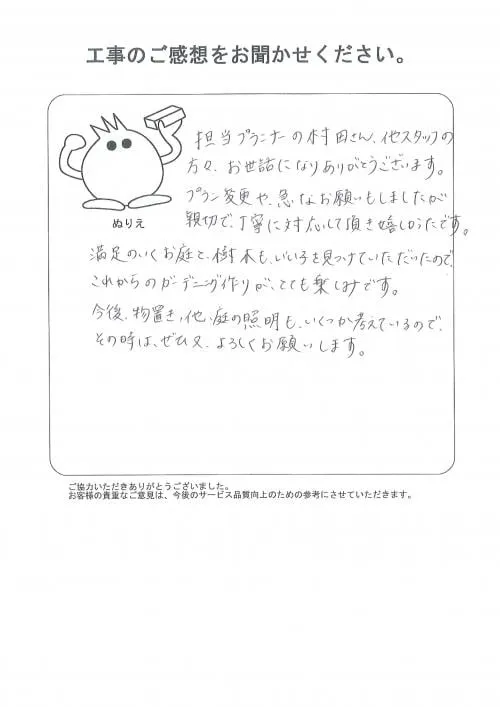 工事のご感想をお聞かせください。
担当プランナーの村田さん、他スタッフの
方々、お世話になりありがとうございます。
プラン変更や、急なお願いもしましたが
親切で、丁寧に対応して頂き嬉しかったです。
ぬりえ
満足のいくお庭と、樹木も、いい子を見つけていただいたので、
これからのガーデニング作りが、とても楽しみです。
今後、物置き、他、庭の照明も、いくつか考えているので、
その時は、ぜひ又、よろしくお願いします。
ご協力いただきありがとうございました。
お客様の貴重なご意見は、今後のサービス品質向上のための参考にさせていただきます。